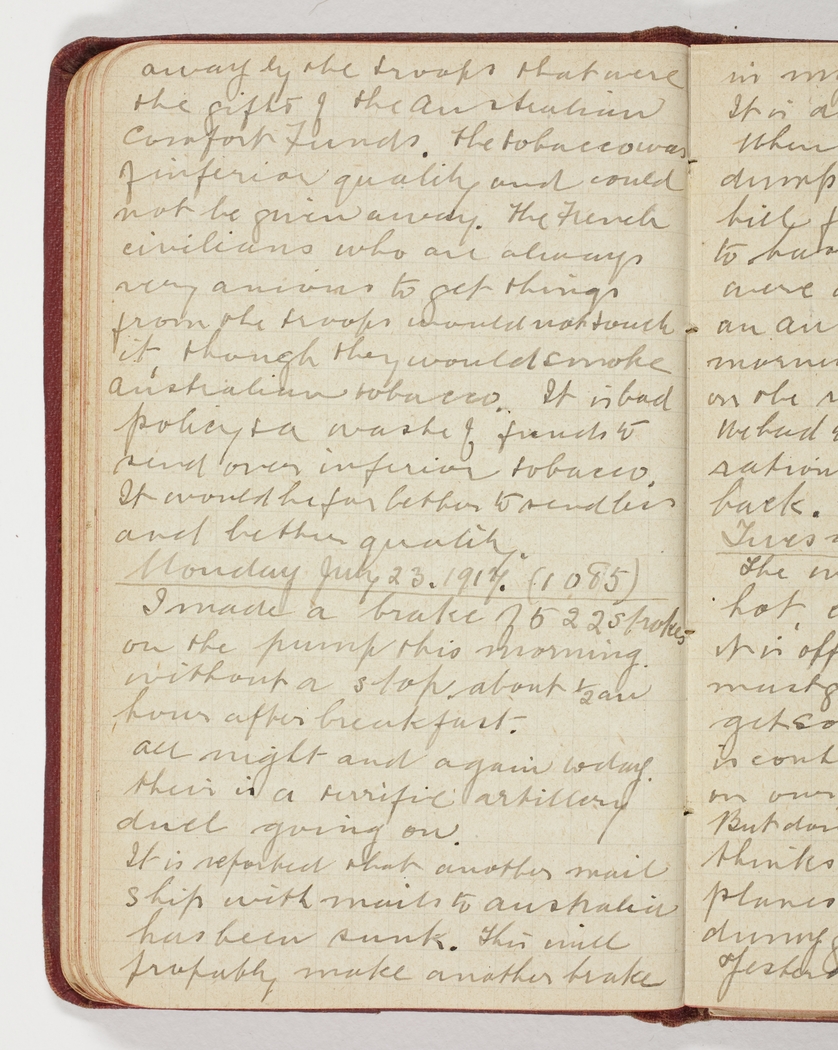 away by the troops that were
the gifts of the Australian
Comfort Funds. The tobacco was
of inferior quality and could
not be given away. The French
civilians who are always
very anious to get things
from the troops would not touch
it though they would smoke
Australian tobacco. It is bad
policy & a waste of funds to
send over inferior tobacco.
It would be far better to send less
and better quality.
Monday July 23. 1917. (1085)
I made a brake of 522 strokes
on the pump this morning.
without a stop. about ½ an
hour after breakfast.
all night and again today.
their is a terrific artillery
duel going on.
It is reported that another mail
ship with mails to Australia
has been sunk. This will
probably make another brake
in
It is
When
dump
bill
to
were
an
morni
on the
We had
ration
back.
Tues
The
hot,
it is off
must
get
is cont
on our
But
thinks
planes
during
Yester